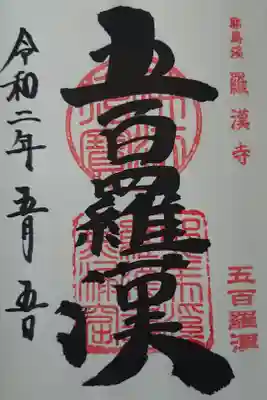 耶馬溪
羅漢寺
五百羅漢
五百羅漢
令和二年五月五日